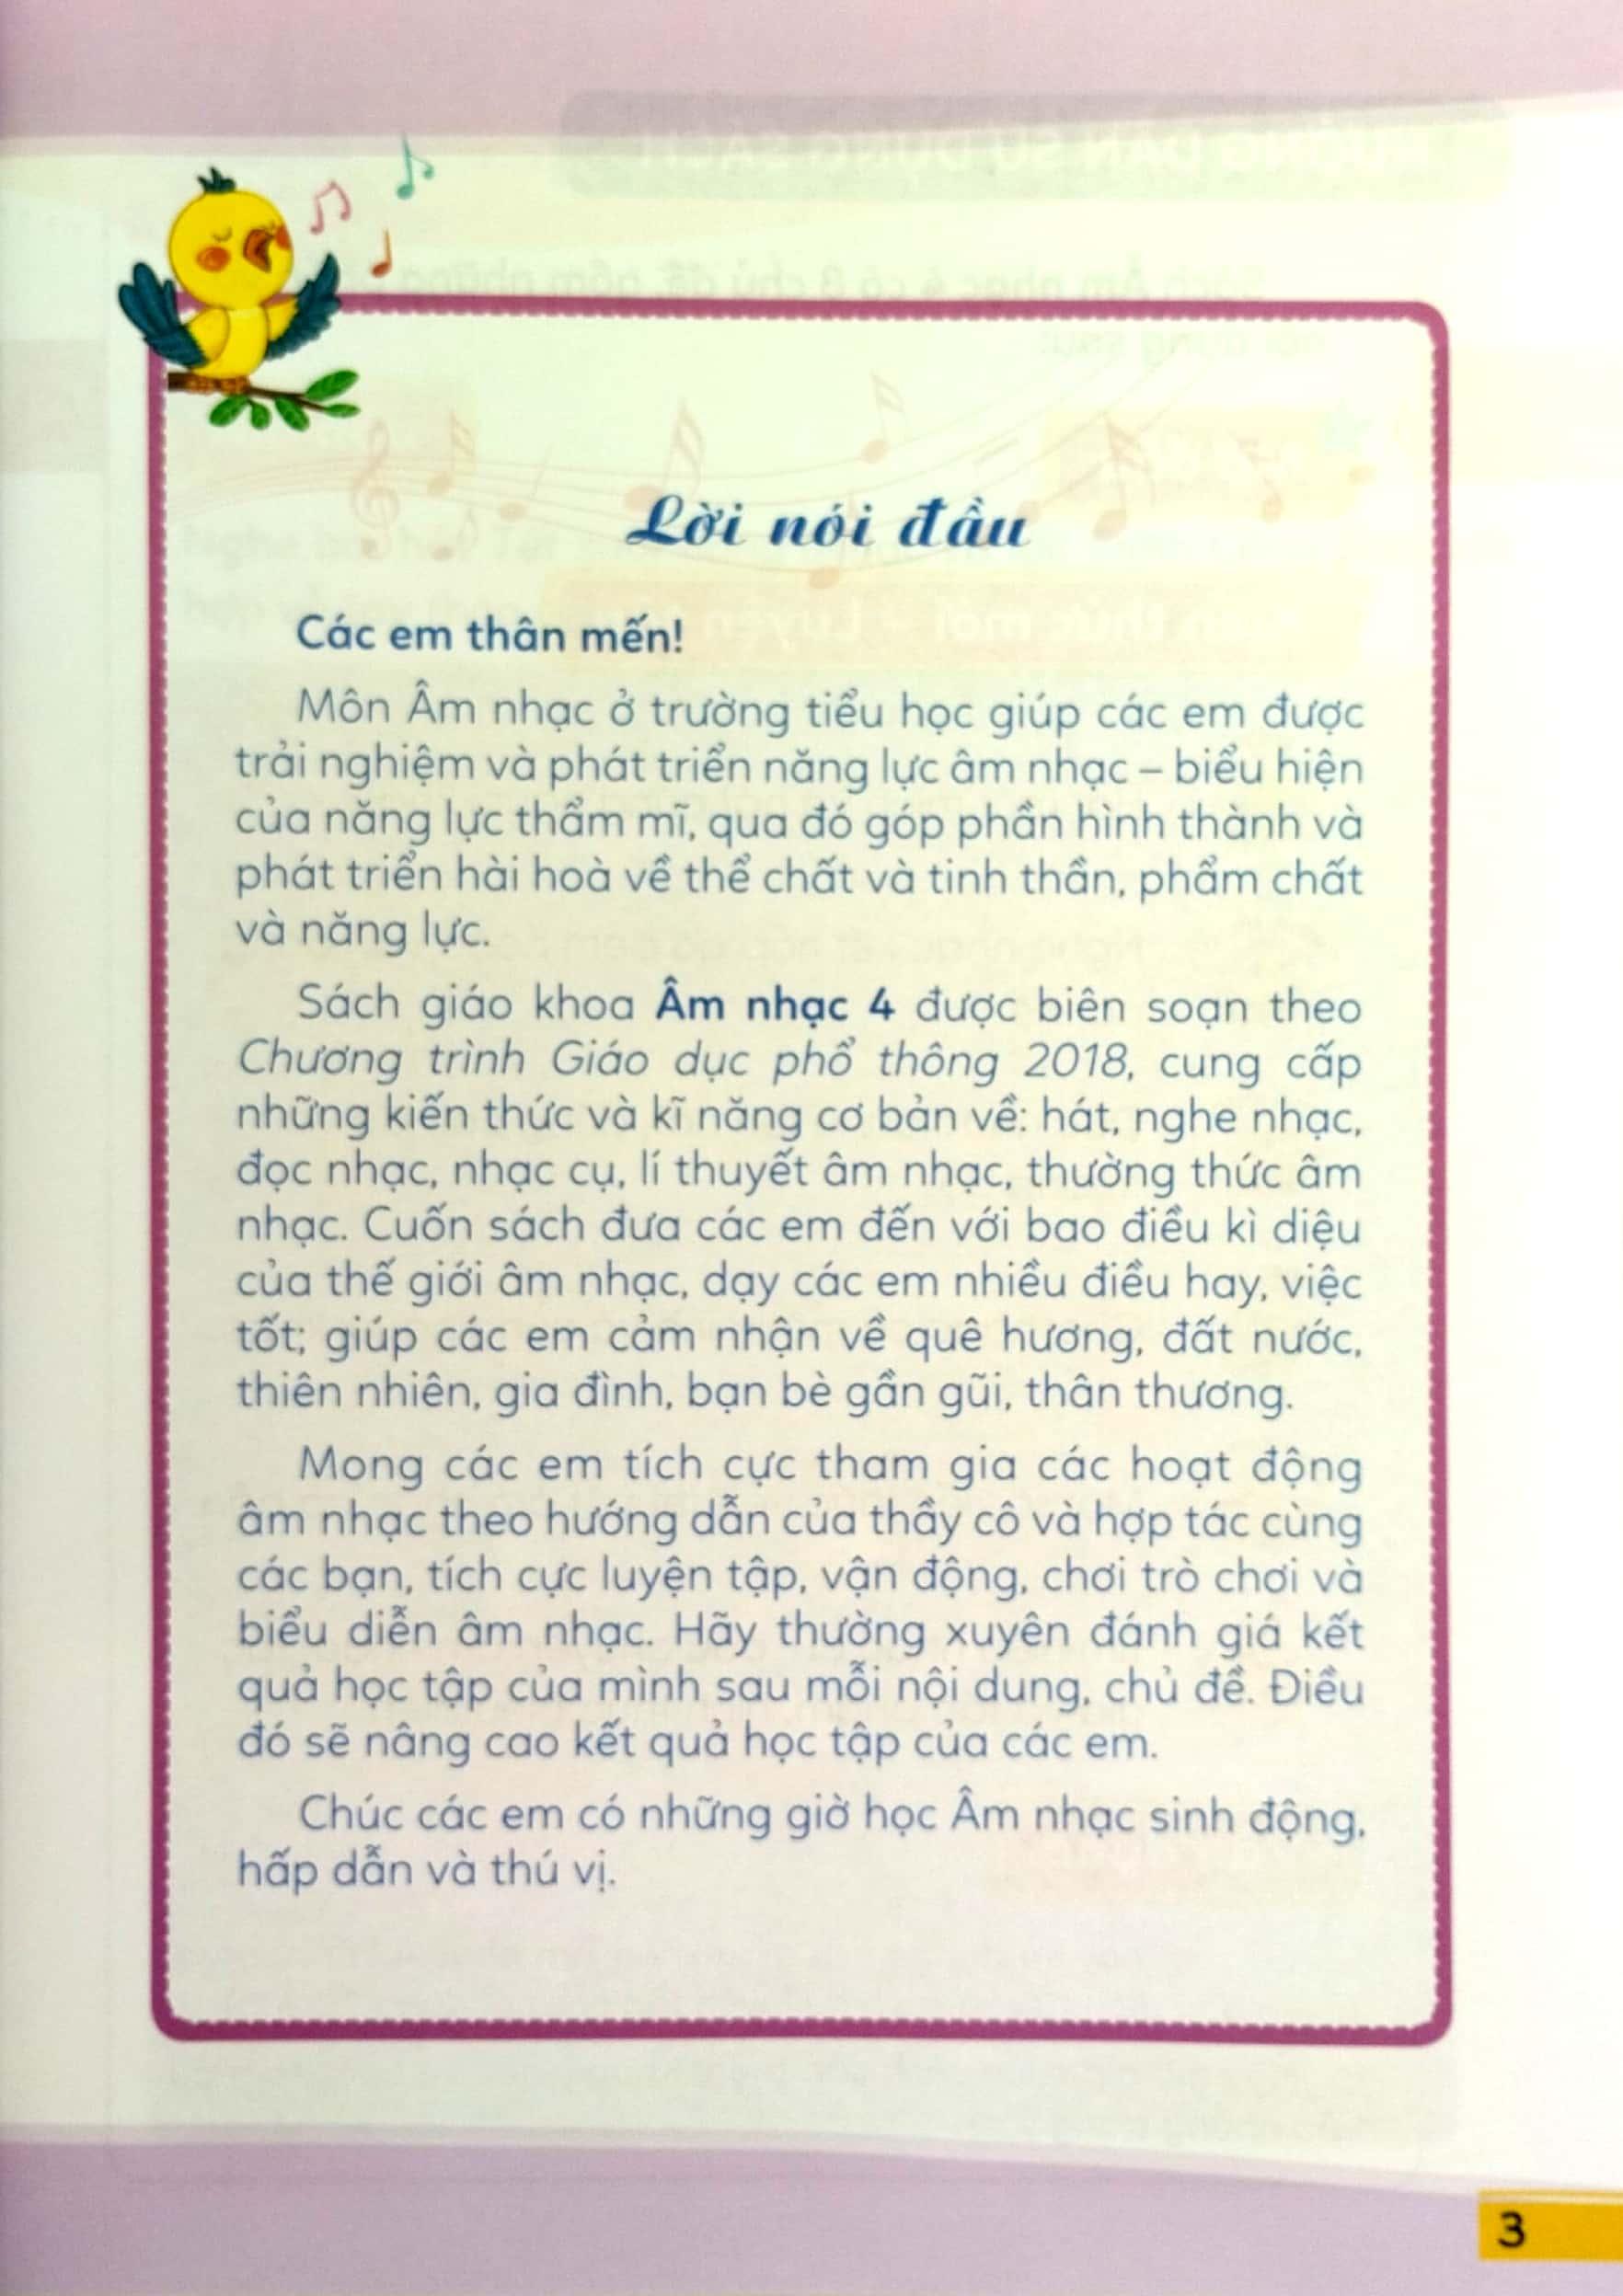 Lời nói đầu
Các em thân mến!
Môn Âm nhạc ở trường tiểu học giúp các em được
trải nghiệm và phát triển năng lực âm nhạc – biểu hiện
của năng lực thẩm mĩ, qua đó góp phần hình thành và
phát triển hài hoà về thể chất và tinh thần, phẩm chất
và năng lực.
Sách giáo khoa Âm nhạc 4 được biên soạn theo
Chương trình Giáo dục phổ thông 2018, cung cấp
những kiến thức và kĩ năng cơ bản về: hát, nghe nhạc,
đọc nhạc, nhạc cụ, lí thuyết âm nhạc, thường thức âm
nhạc. Cuốn sách đưa các em đến với bao điều kì diệu
của thế giới âm nhạc, dạy các em nhiều điều hay, việc
tốt; giúp các em cảm nhận về quê hương, đất nước,
thiên nhiên, gia đình, bạn bè gần gũi, thân thương.
Mong các em tích cực tham gia các hoạt động
âm nhạc theo hướng dẫn của thầy cô và hợp tác cùng
các bạn, tích cực luyện tập, vận động, chơi trò chơi và
biểu diễn âm nhạc. Hãy thường xuyên đánh giá kết
quả học tập của mình sau mỗi nội dung, chủ đề. Điều
đó sẽ nâng cao kết quả học tập của các em.
Chúc các em có những giờ học Âm nhạc sinh động,
hấp dẫn và thú vị.
3